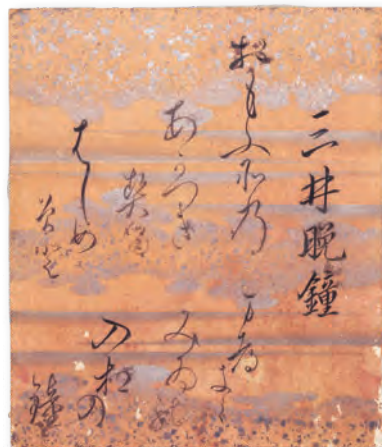 三井晩鐘
於もふ所乃
あかつき
契留
はしめ
とそ
まつきく
みゐの
入相の
鐘